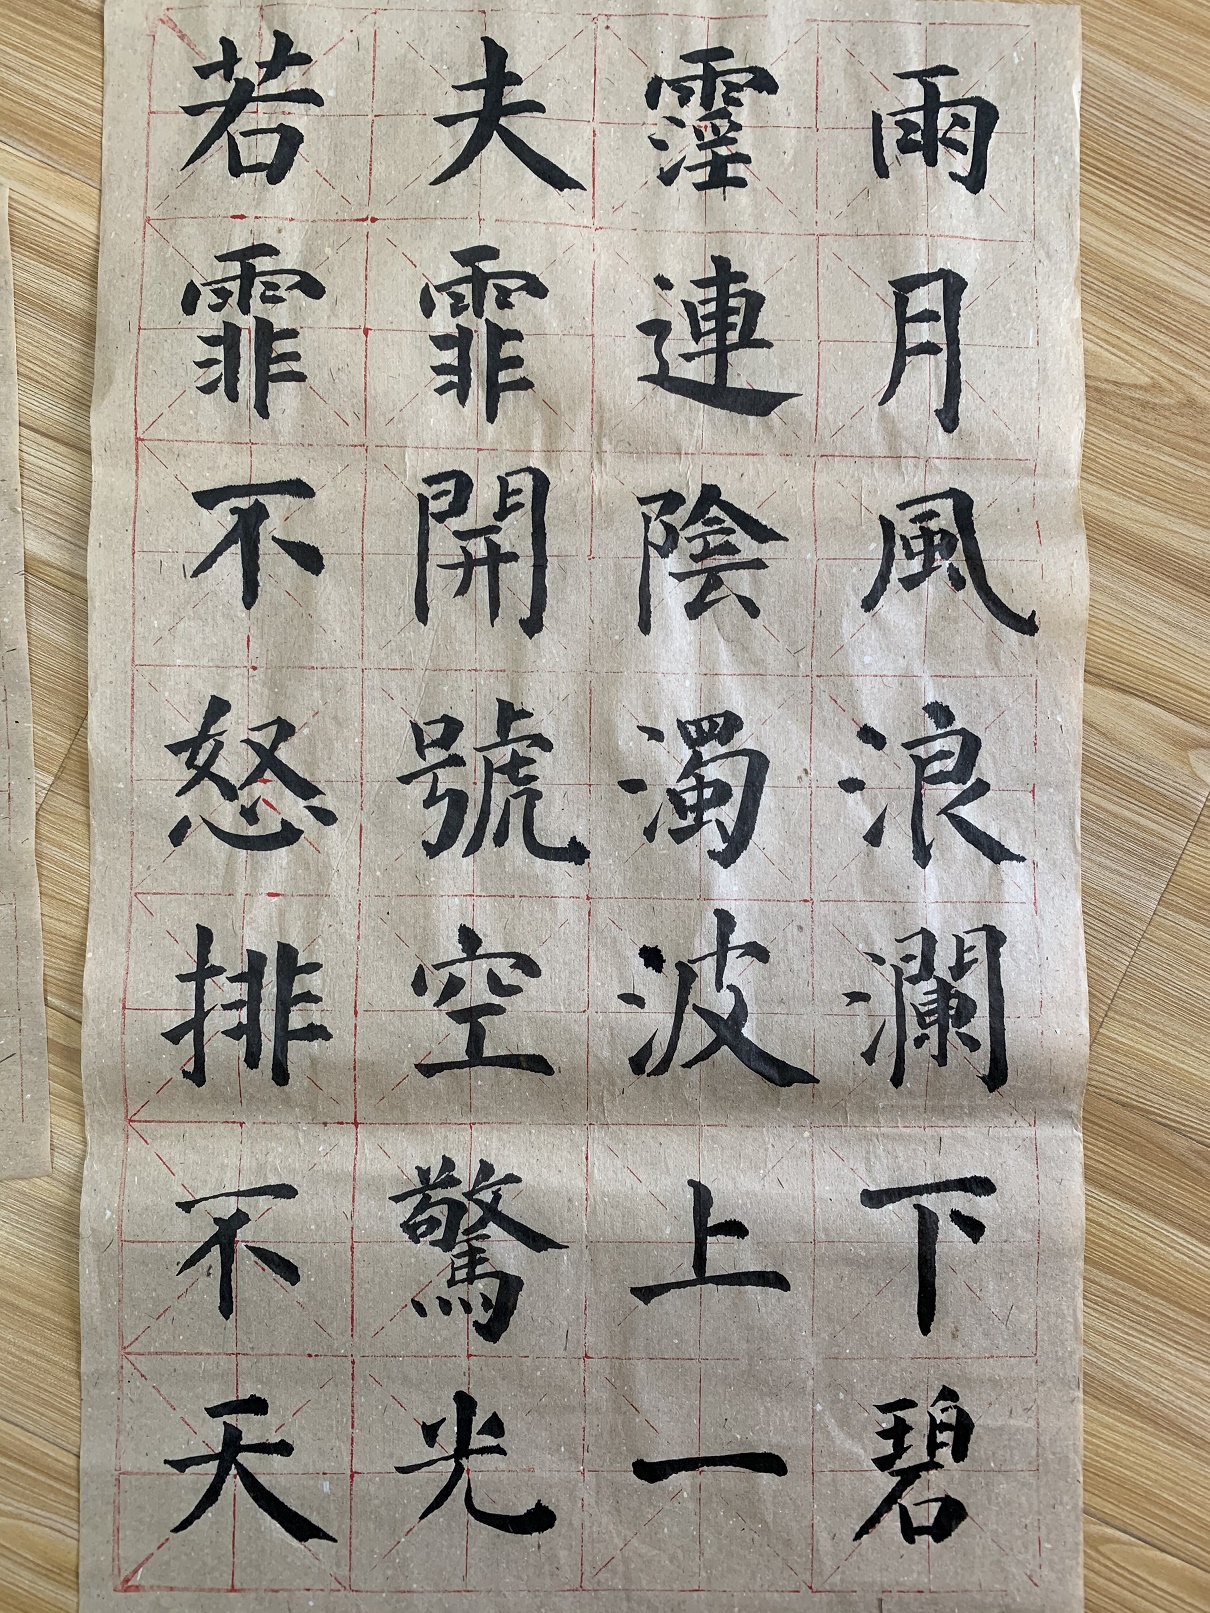 若夫霪雨
霏霏連月
不開陰風
怒號濁浪
排空波瀾
不驚上下
天光一碧